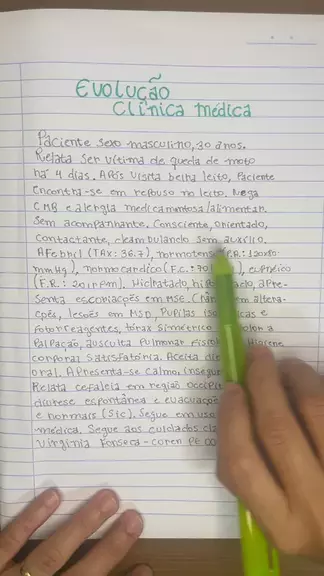 Evolução
Clínica médica
Paciente sexo masculino, 30 anos.
Relata ser vítima de queda de moto
há 4 dias. Após visita beira leito, paciente
encontra-se em repouso no leito. Nega
e alergia medicamentosa/alimentar.
sem acompanhante. Consciente, orientado,
contactante, deambulando sem auxílio.
Afebril (TAX: 36.7), normotenso (P.A.: 120x80
mmHg), normocárdico (F.C.: 90
(F.R.: 20irpm). Hidratado, apre-
senta escoriações em MSE. Crânio sem altera-
ções, lesões em MSD, Pupilas
fotorreagentes, tórax simétrico
Palpação, ausculta Pulmonar Higiene
corporal satisfatória. Aceita
oral. Apresenta-se calmo,
Relata cefaleia em região
diurese espontânea e evacuações
e normais (sic). Segue em uso
médica. Segue aos cuidados
Virginia Fonseca - coren